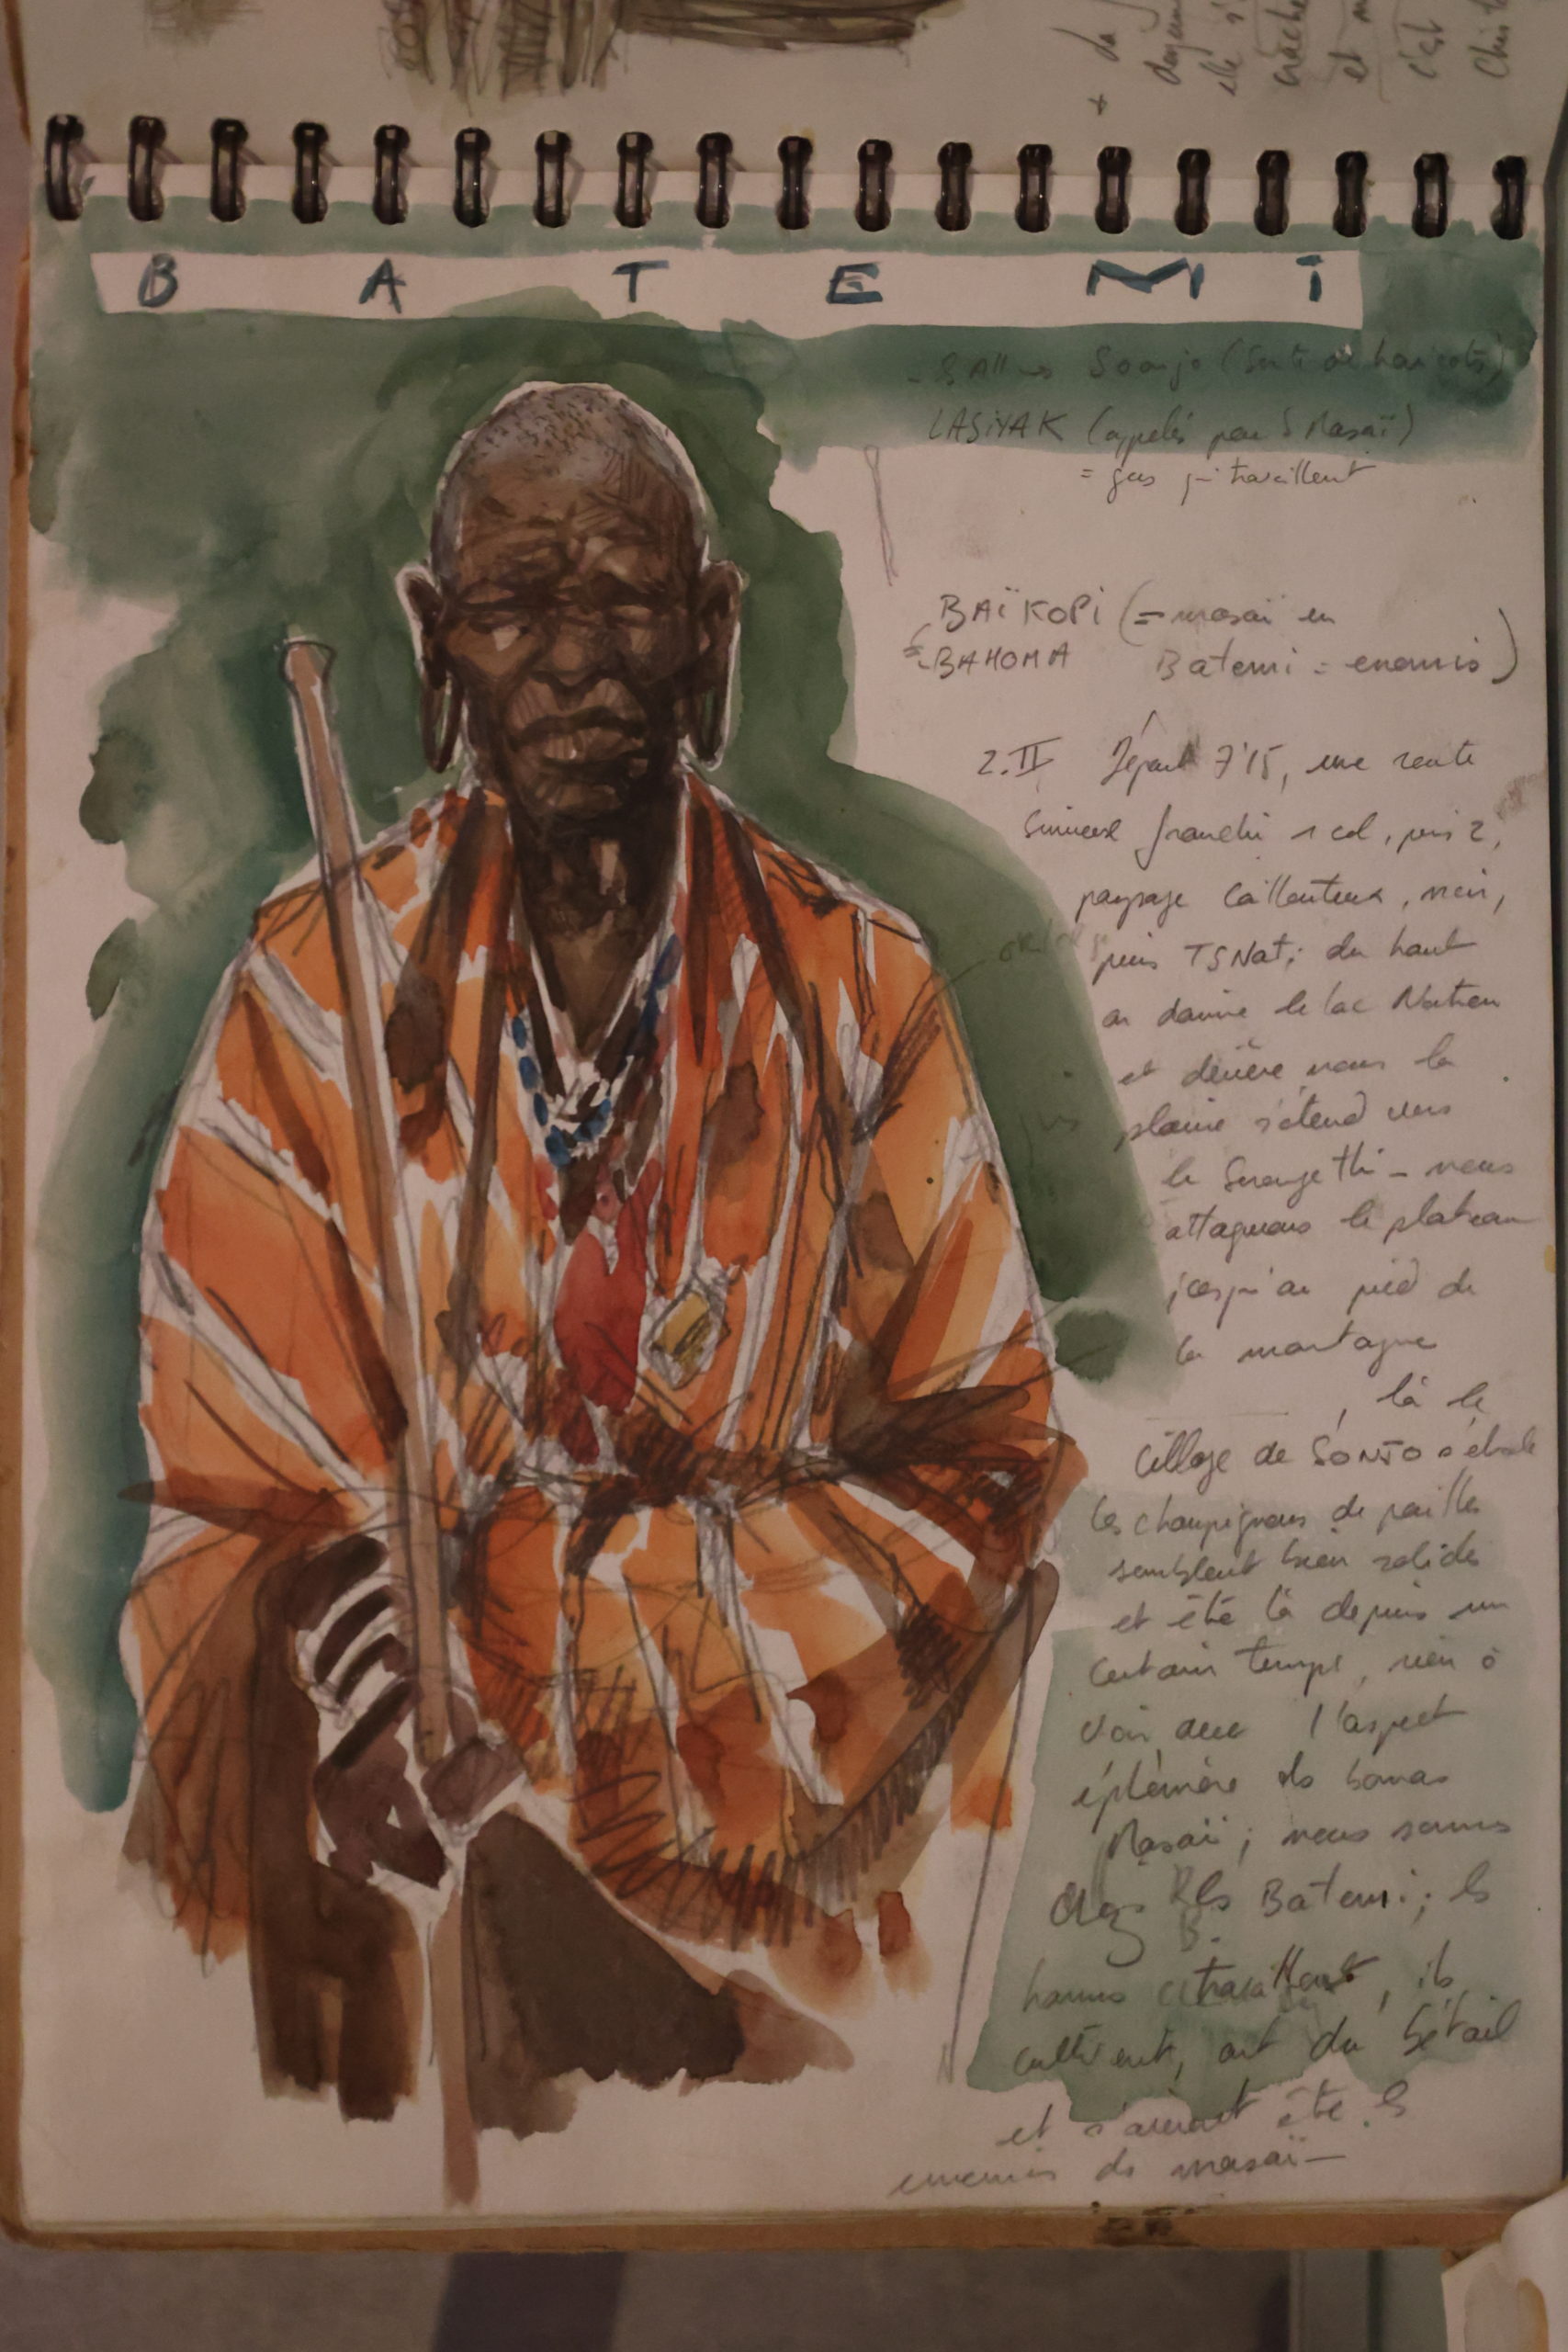 + da
elle s'
crache
et m
c'est
BATEMI
Soonjo (sorte de haricots)
LASIYAK (appelés par s Masaï)
= gens qui travaillent
BAÏKOPI (= masaï en
= BAHOMA Batemi = enemis)
2.II Départ 7'15, une route
sinueuse franchi 1 col, puis 2,
paysage caillouteux, noir,
puis du haut
on domine le lac Natron
et derière nous la
plaine s'étend vers
le Serengethi - nous
attaquons le plateau
jusqu'au pied de
la montagne
, là le
village de SONJO s'étale
les champignons de pailles
semblent bien solides
et été là depuis un
certain temps, rien à
voir avec l'aspect
éphémère ds bomas
Masaï ; nous sommes
chez ls Batemi ; ls
B.
hommes travaillent, ils
cultivent, ont du bétail
et s'avèrent être ls
ennemis ds masaï -